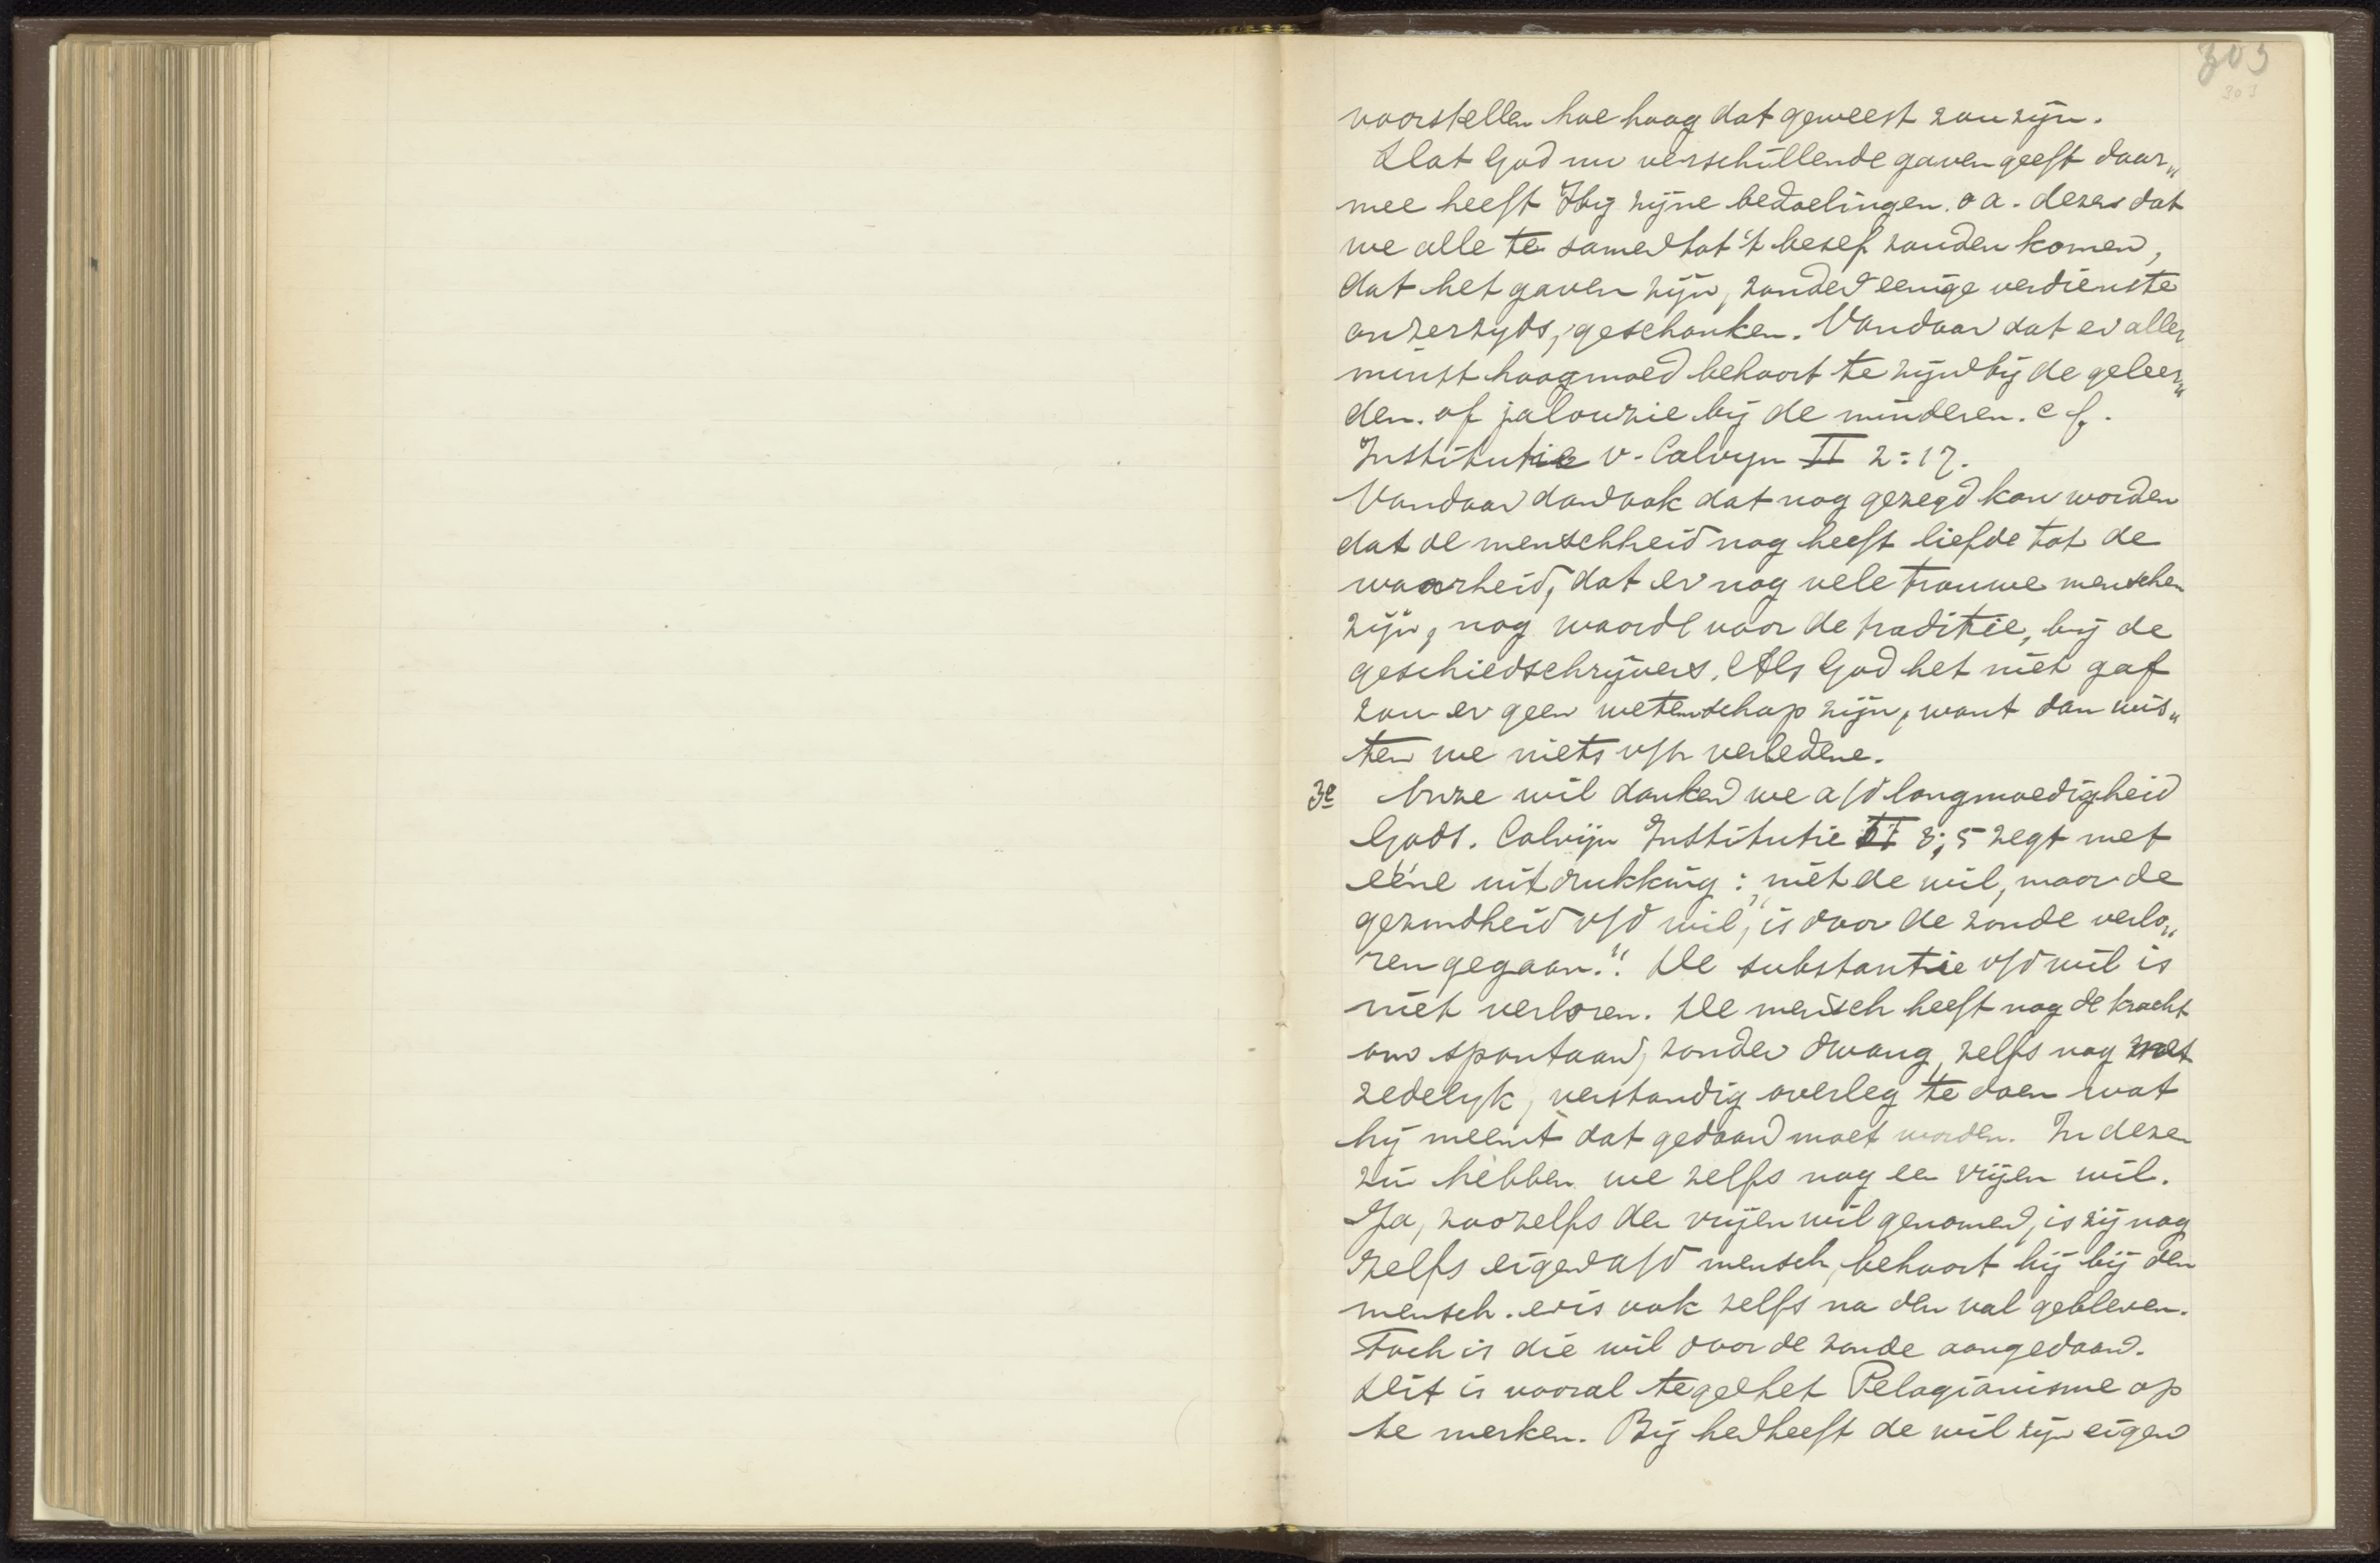 303
303
voorstellen hoe hoog dat geweest zou zijn.
Dat God nu verschillende gaven geeft daar„
mee heeft Hij zijne bedoelingen. o a. deze dat
we alle te samen tot 't besef zouden komen,
dat het gaven zijn, zonder eenige verdienste
onzerzyds, geschonken. Vandaar dat er aller
minst hoogmoed behoort te zijn bij de geleer„
den. of jalouzie bij de minderen. cf.
Institutie v. Calvyn II 2:17.
Vandaar dan ook dat nog gezegd kan worden
dat de menschheid nog heeft liefde tot de
waarheid, dat er nog vele trouwe menschen
zijn, nog waarde voor de traditie, bij de
geschiedschrijvers. Als God het niet gaf
zou er geen wetenschap zijn, want dan wis„
ten we niets v/h verledene.
3e Onze wil danken we a/d langmoedigheid
Gods. Calvijn Institutie II 3;5 zegt met
eéne uitdrukking: „niet de wil, maar de
gezondheid v/d wil, is door de zonde verlo„
ren gegaan.” De substantie v/d wil is
niet verloren. De mensch heeft nog de kracht
om spontaan, zonder dwang, zelfs nog met
zedelyk, verstandig overleg te doen wat
hij meent dat gedaan moet worden. In dezen
zin hebben we zelfs nog een vrijen wil.
Ja, zoozelfs den vrijen wil genomen, is zij nog
zelfs eigen a/d mensch, behoort hij bij den
mensch. en is ook zelfs na den val gebleven.
Toch is die wil door de zonde aangedaan.
Dit is vooral tegen het Pelagianisme op
te merken. Bij hen heeft de wil zijn eigen